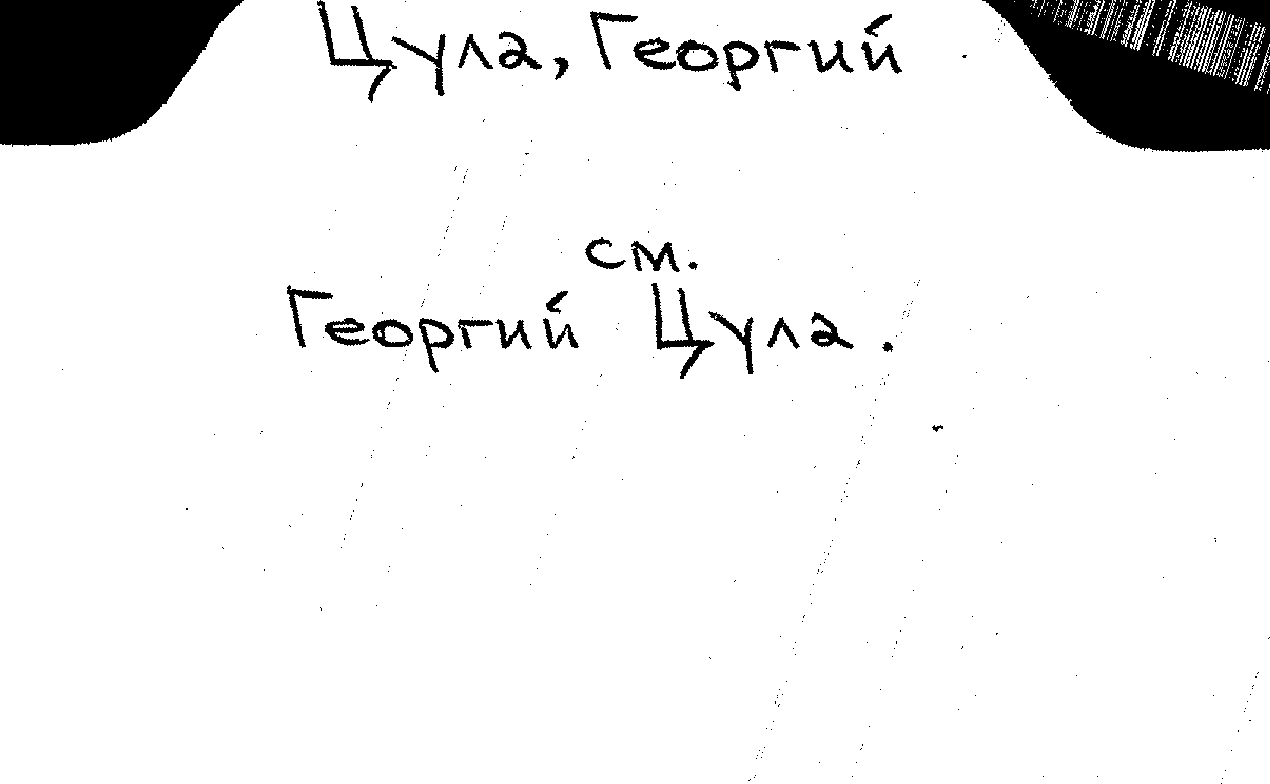 Цула, Георгий
см.
Георгий Цула.